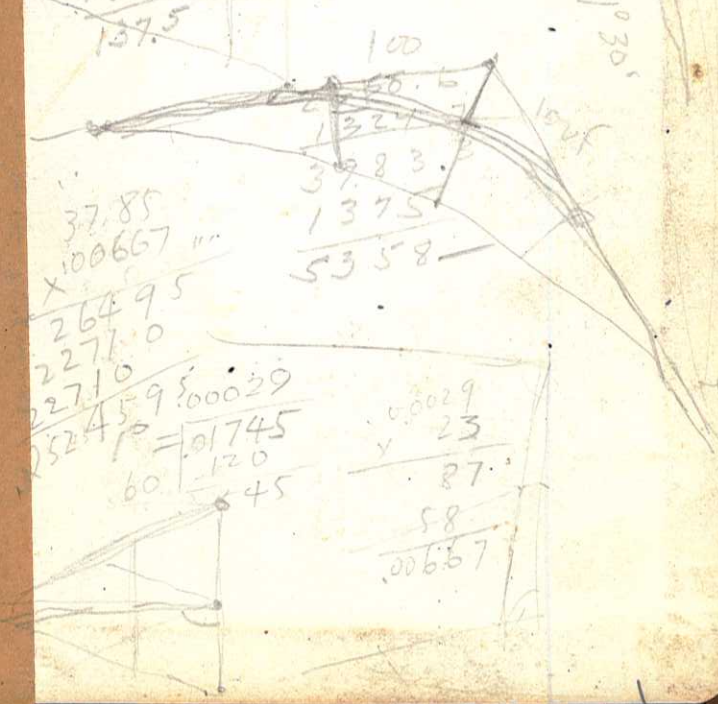 137.5
1°30'
100
66.6
1324
39.83
1375
5358
37.85
x.00667
26495
22710
22710
2524595
.00029
1° =
60 .01745
120
45
.00029
x 23
87
58
.00667